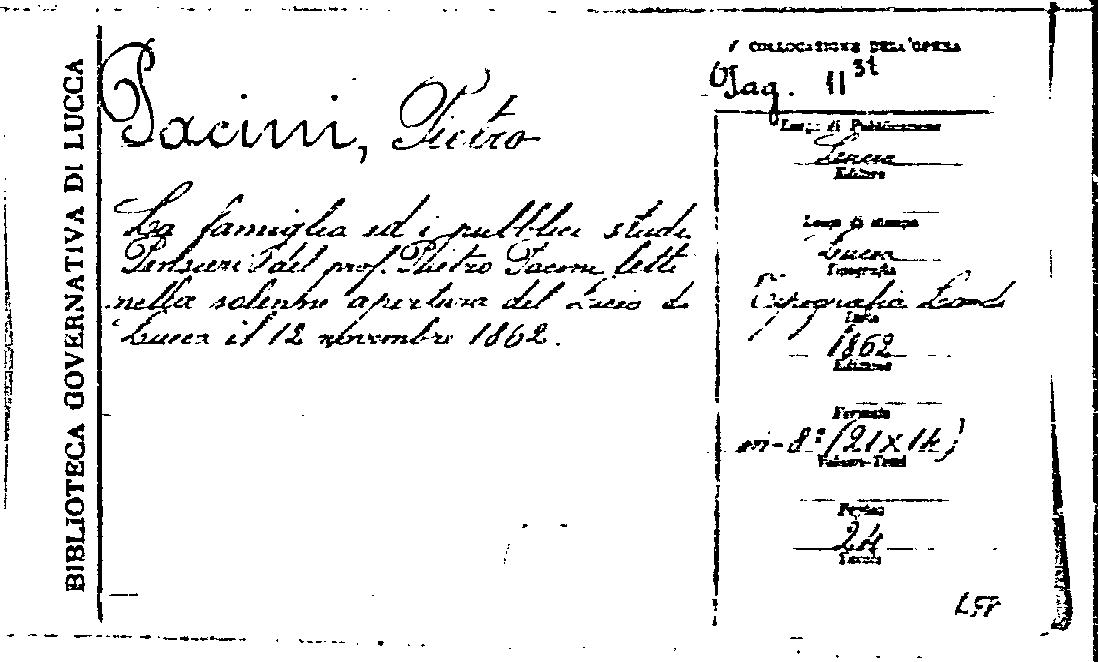 BIBLIOTECA GOVERNATIVA DI LUCCA
Pacini, Pietro
La famiglia ed i pubblici studi
Pensieri del prof. Pietro Pacini letti
nella solenne apertura del Liceo di
Lucca il 12 novembre 1862.
COLLOCAZIONE DELL'OPERA
Pag. 11
Luogo di Pubblicazione
Lucca
Editore
Luogo di stampa
Lucca
Tipografia
Tipografia Landi
Data
1862
Edizione
Formato
in-8° (21x14)
Volumi-Tomi
Pagine
24
Tavole